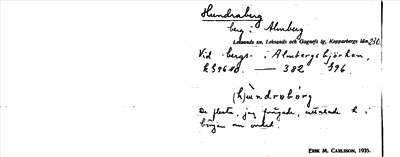 Hundraberg
berg i Almberg
Leksands sn, Leksands och Gagnefs tg, Kopparbergs län. 230.
Vid -bergs- i Almbergsbjörken,
382 596
(h)ùndrabö́rg
De flesta, jag frågade, uttalade h i
början av ordet.
ERIK M. CARLSSON, 1935.